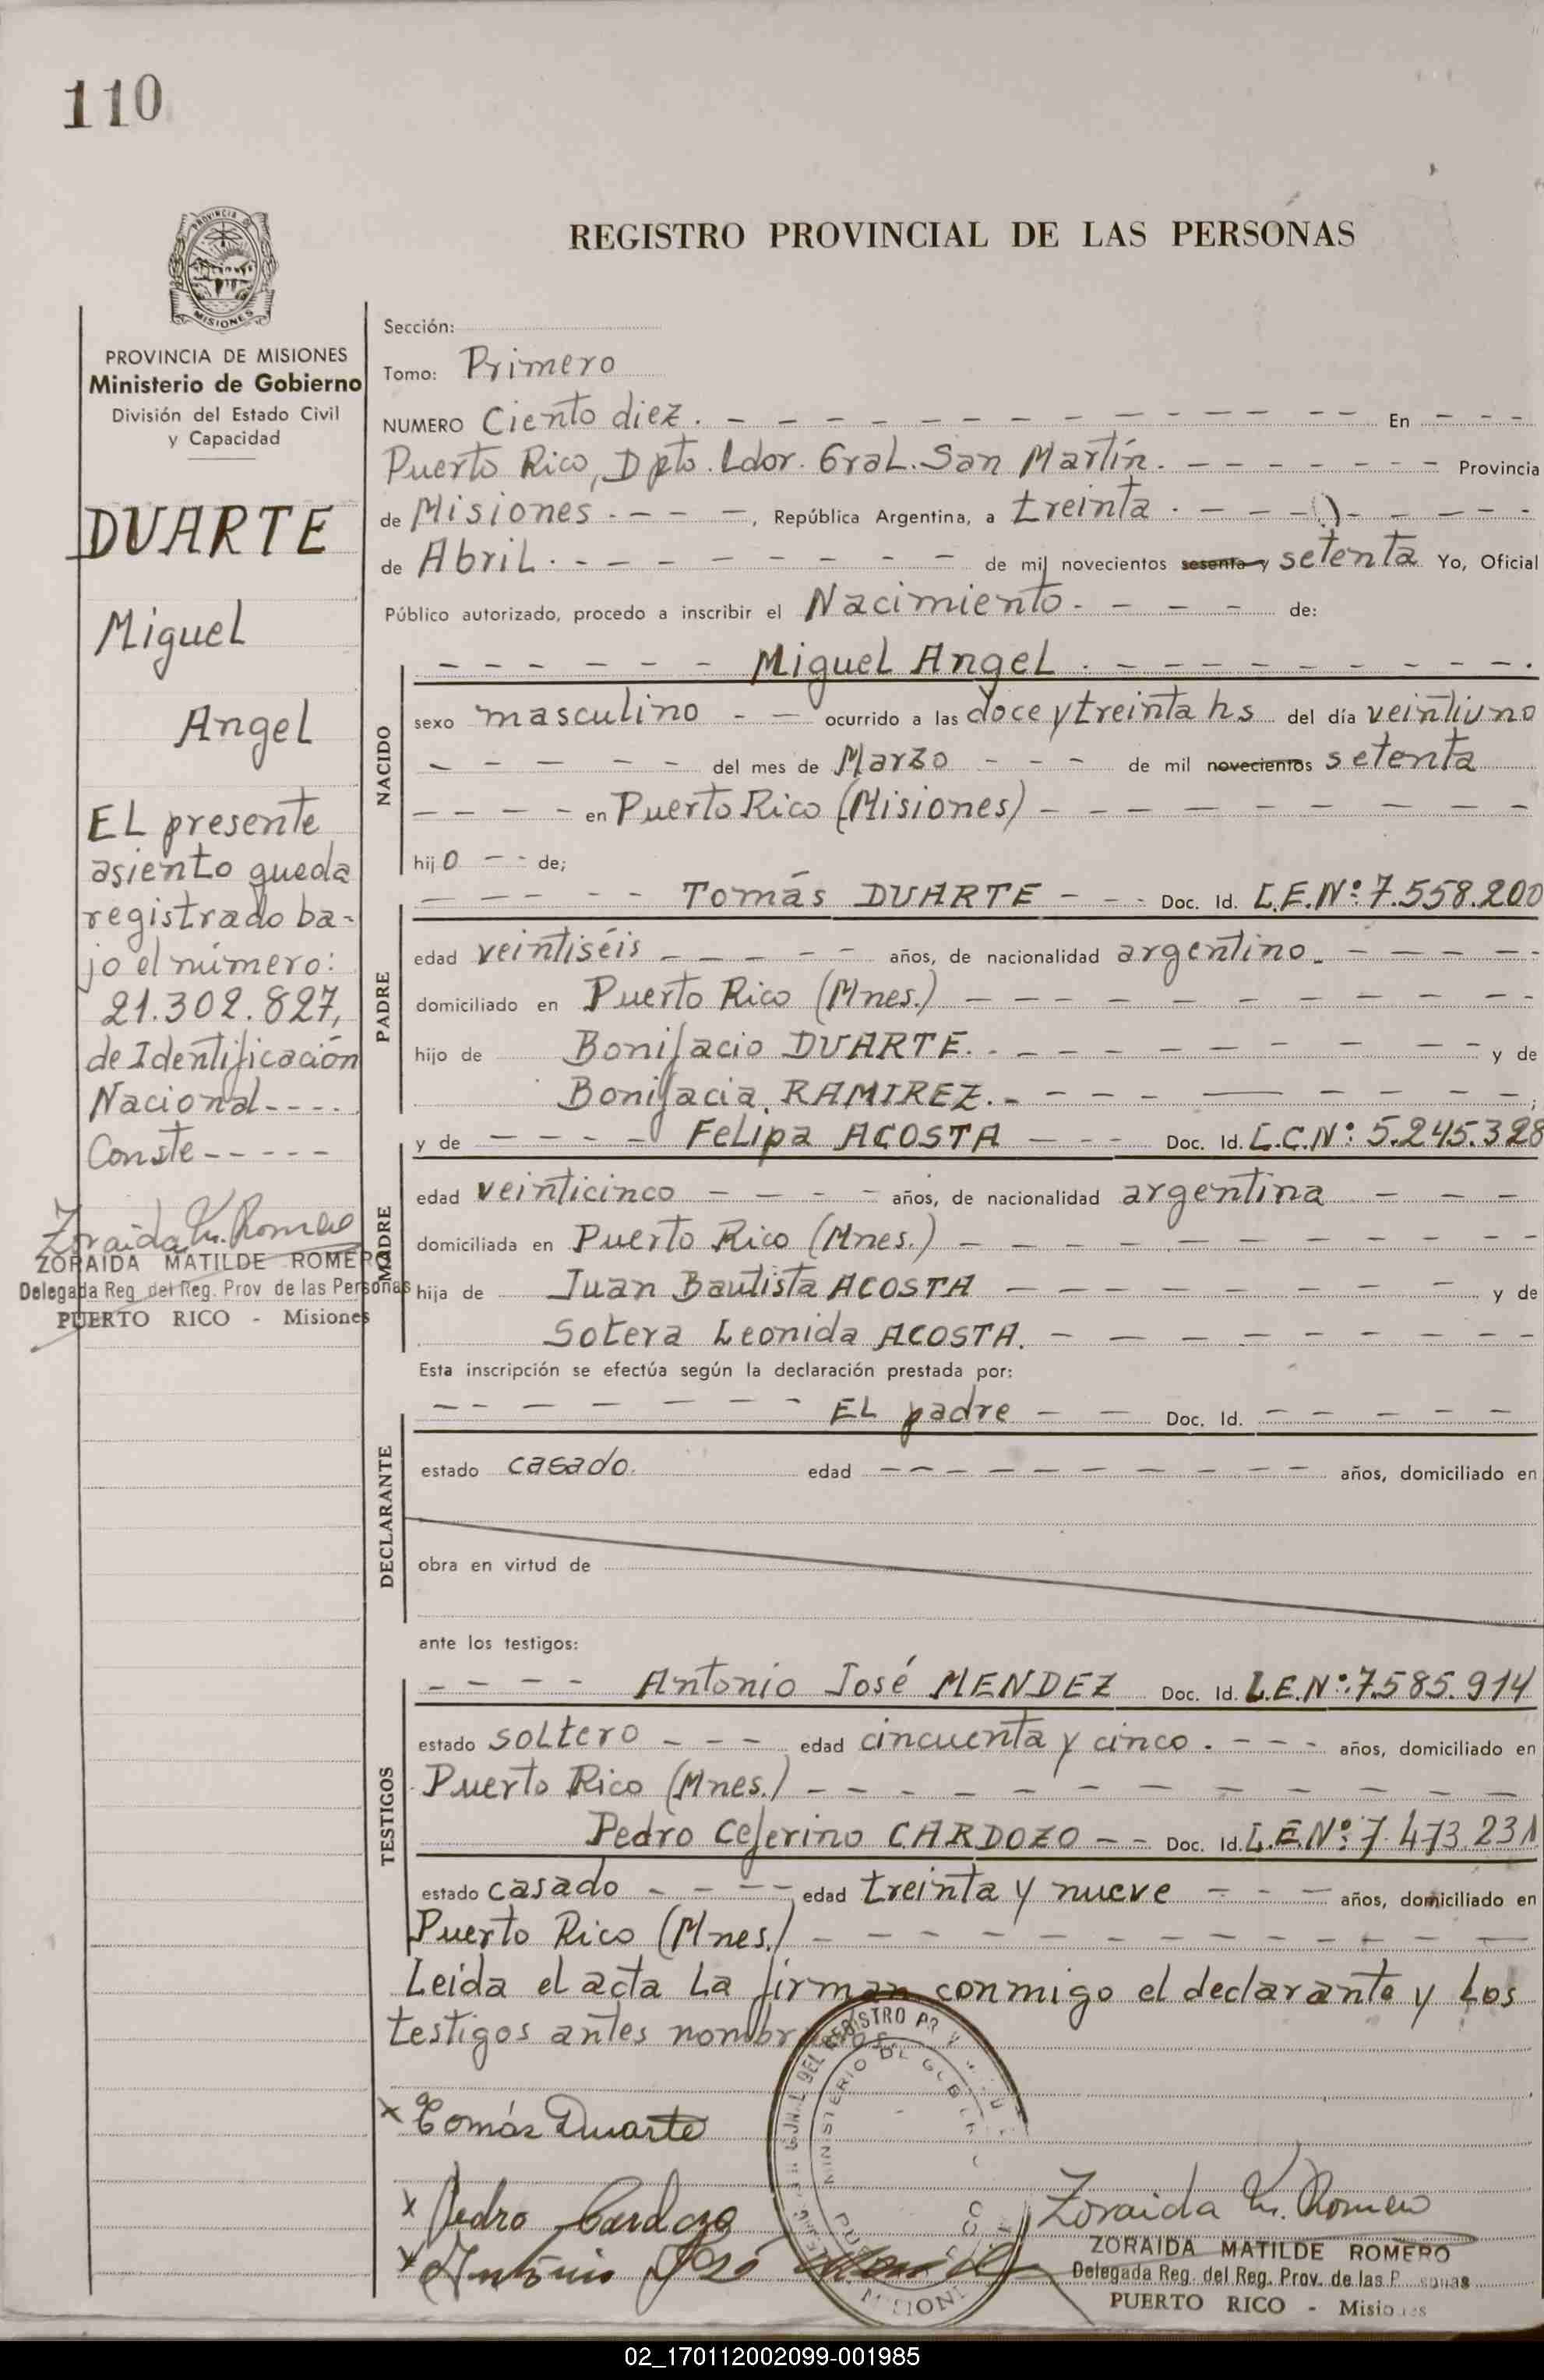 110
PROVINCIA
MISIONES
REGISTRO PROVINCIAL DE LAS PERSONAS
PROVINCIA DE MISIONES
Ministerio de Gobierno
División del Estado Civil
y Capacidad
DUARTE
Miguel
Angel
EL presente
asiento queda
registrado ba-
jo el número:
21.302.827,
de Identificación
Nacional----.
Conste-----
Zoraida M. Romero
ZORAIDA MATILDE ROMERO
Delegada Reg. del Reg. Prov de las Personas
PUERTO RICO - Misiones
Sección:
Tomo: Primero
NUMERO Ciento diez. - - - - - - - - - - - - - - En - - - -
Puerto Rico, Dpto. Ldor. Gral. San Martín. - - - - - - - Provincia
de Misiones - - - -, República Argentina, a treinta . - - - - - - - -
de Abril. - - - - - - - - - de mil novecientos sesenta y setenta Yo, Oficial
Público autorizado, procedo a inscribir el Nacimiento - - - - - de:
- - - - - - - Miguel Angel . - - - - - - - - - .
NACIDO
sexo masculino - - ocurrido a las doce y treinta hs del día veintiuno
- - - - - - del mes de Marzo - - - de mil novecientos setenta
- - - - en Puerto Rico (Misiones) - - - - - - - - - -
hijo - - de;
PADRE
- - - - - Tomás DUARTE - - - Doc. Id. L.E.Nº 7.558.200
edad veintiséis - - - - - años, de nacionalidad argentino. - - - - -
domiciliado en Puerto Rico (Mnes.) - - - - - - - - - - -
hijo de Bonifacio DUARTE. - - - - - - - - - y de
Bonifacia RAMIREZ. - - - - - - - - - - ;
MADRE
y de - - - - Felipa ACOSTA - - - Doc. Id. L.C.Nº 5.245.328
edad veinticinco - - - - años, de nacionalidad argentina - - -
domiciliada en Puerto Rico (Mnes.) - - - - - - - - - - -
hija de Juan Bautista ACOSTA - - - - - - - - y de
Sotera Leonida ACOSTA. - - - - - - - - - -
Esta inscripción se efectúa según la declaración prestada por:
DECLARANTE
- - - - - - - - EL padre - - Doc. Id. - - - - -
estado casado. edad - - - - - - - - - - años, domiciliado en
obra en virtud de
ante los testigos:
TESTIGOS
- - - - Antonio José MENDEZ Doc. Id. L.E.Nº 7.585.914
estado soltero - - - edad cincuenta y cinco . - - - años, domiciliado en
Puerto Rico (Mnes.) - - - - - - - - - - -
Pedro Ceferino CARDOZO - - Doc. Id. L.E.Nº 7.473.231
estado casado - - - - edad treinta y nueve - - - años, domiciliado en
Puerto Rico (Mnes.) - - - - - - - - - - - -
Leida el acta la firman conmigo el declarante y los
testigos antes nombrados.
DEL REGISTRO
MINISTERIO DE
Tomás Duarte
Pedro Cardozo
Antonio José Mendez
Zoraida M. Romero
ZORAIDA MATILDE ROMERO
Delegada Reg. del Reg. Prov. de las Personas
PUERTO RICO - Misiones
02_170112002099-001985